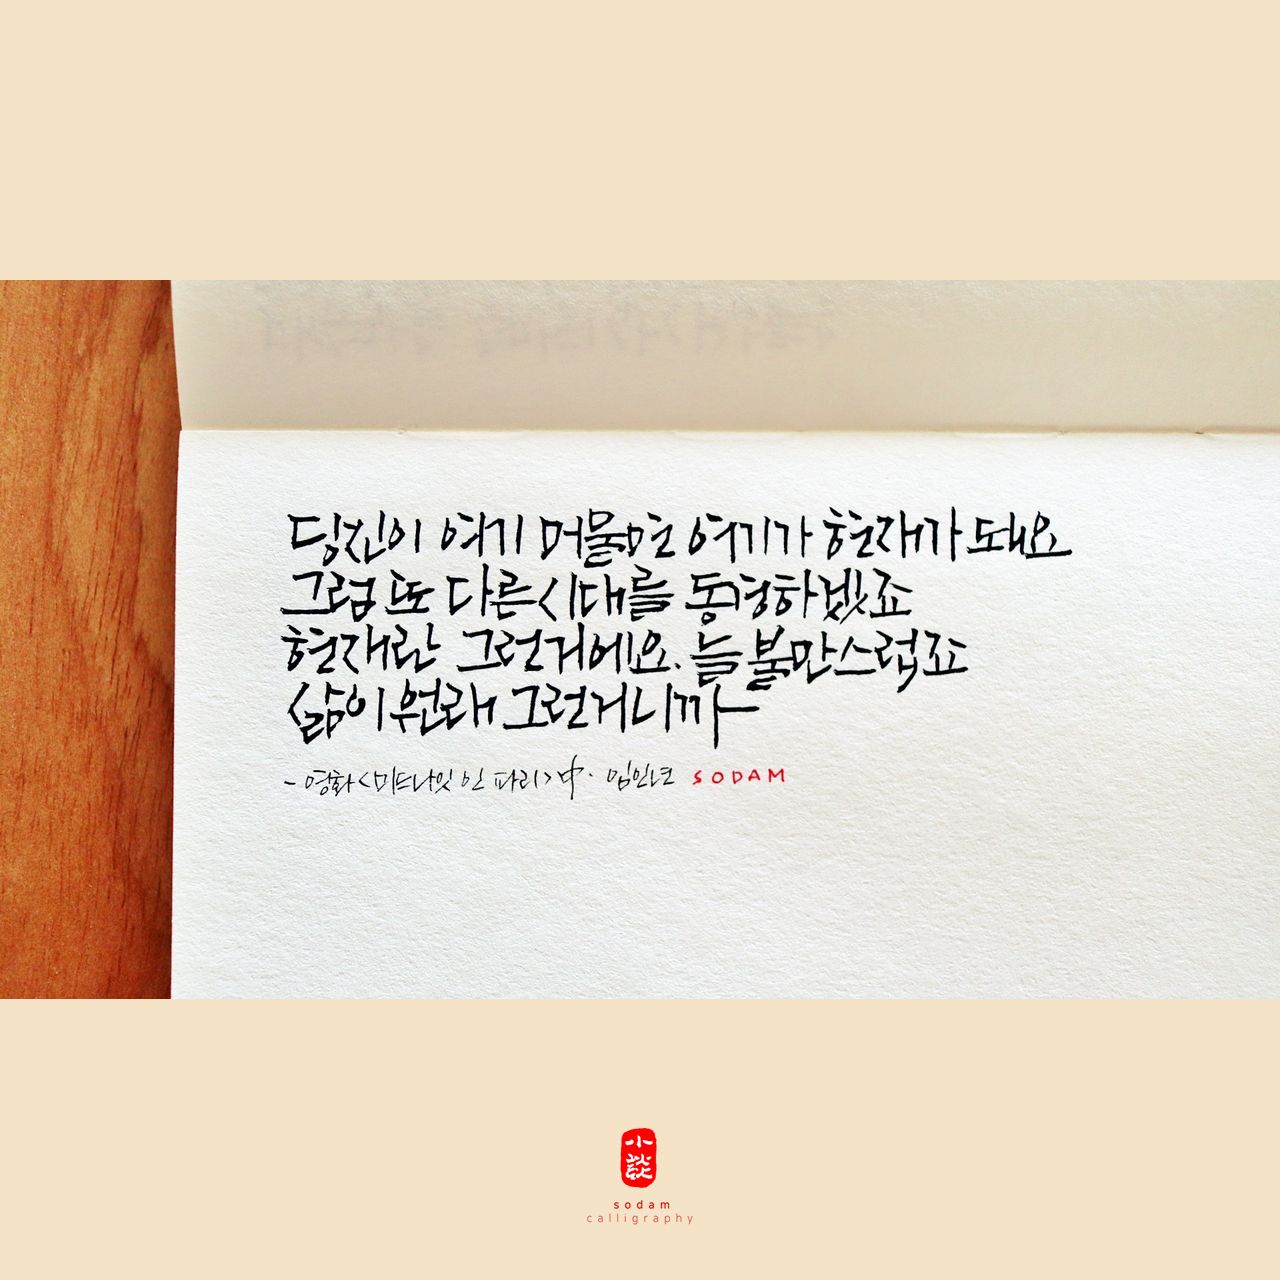 당신이 여기 머물면 여기가 현재가 돼요
그럼 또 다른 시대를 동경하겠죠
현재란 그런거에요. 늘 불만스럽죠
삶이 원래 그런거니까
- 영화 <미드나잇 인 파리> 中. SODAM
小談
sodam
calligraphy